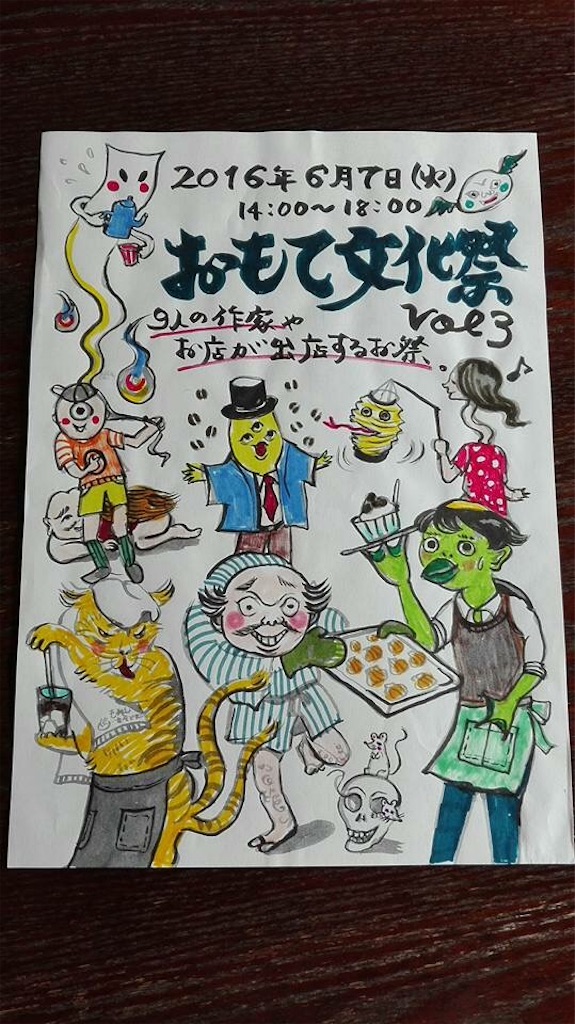 2016年6月7日(火)
14:00〜18:00
おもて文化祭
vol3
9人の作家や
お店が出店するお祭